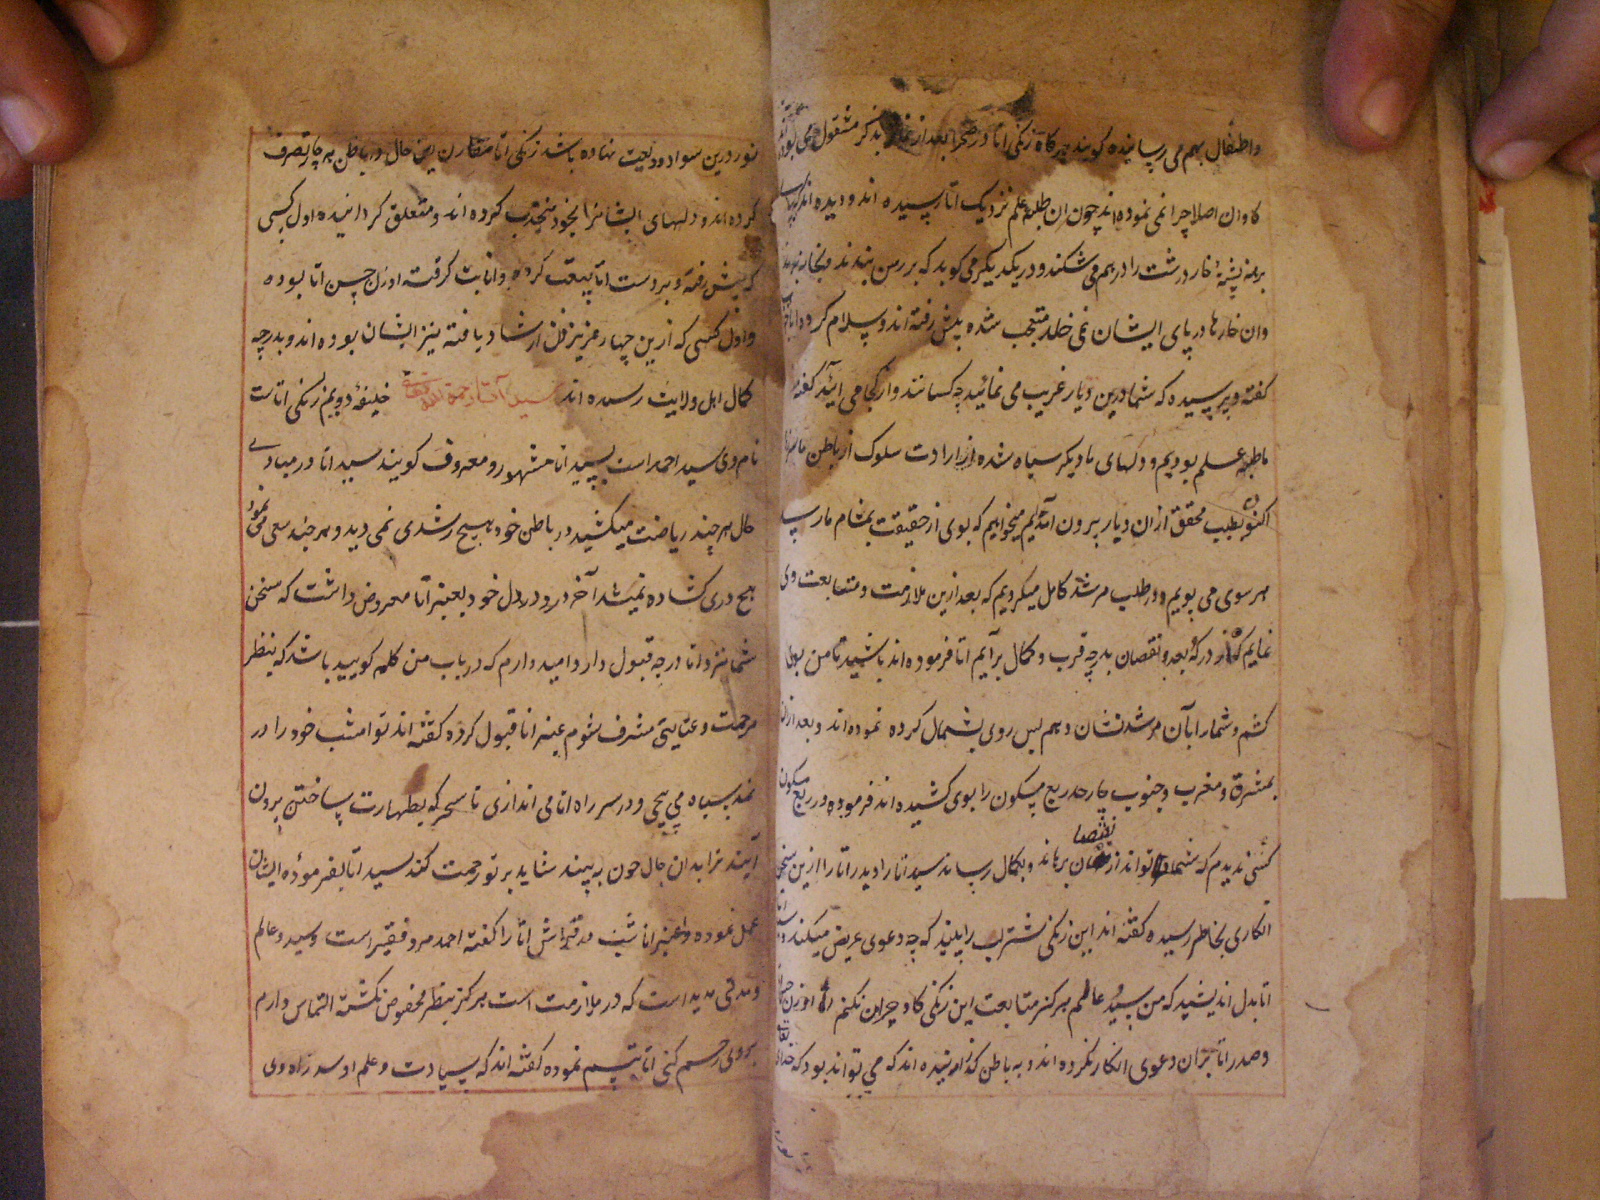 واطفال بهم می رسانیده گویند هر گاه زنگی اتا در صحرا بعد از نماز بذکر مشغول می بوده
گاوان اصلا چرا نمی نموده اند چون ان طلبه علم نزدیک اتا رسیده اند و دیده اند که
برهنه خار درشت را درهم می شکند و دریکدیگر می کوبد که بر رسن بندند و بخانه برند
وان خارها در پای ایشان نمی خلد متعجب شده پیش رفته اند و سلام کرده اتا جواب
گفته و پرسیده که شما درین دیار غریب می نمائید چه کسانند و از کجا می ایید گفته
ما طلبه علم بودیم و دلهای ما دیگر سیاه شده ارادت سلوک از باطن ما
اکنون بطلب محقق ازان دیار بیرون آمده ایم میخواهیم که بوی از حقیقت بمشام ما رسد
بهر سوی می پوییم و در طلب مرشد کامل میگردیم که بعد ازین ملازمت و متابعت وی
نمایم که از درکه بعد و نقصان بدرجه قرب و کمال برآیم اتا فرموده اند باشید تا من بوی
کشم و شما را بآن مرشد نشان دهم پس روی بشمال کرده نموده اند و بعد ازان
بمشرق و مغرب و جنوب چار حد ربع مسکون را بوی کشیده اند فرموده در ربع مسکون
کسی ندیدم که شما را تواند از نقصان برهاند و بکمال رساند سید اتا را و بدر اتا را ازین سخن
انکاری بخاطر رسیده گفته اند این زنگی شترلب را ببیند که چه دعوی عریض میکند
اتا بدل اندیشید که من سید و عالمم هرگز متابعت این زنگی گاو چران نکنم اما اوزن حسن
و صدر اتا بران دعوی انکار نکرده اند و به باطن گذرانیده اند که می تواند بود که خدای
نور درین سواد ودیعت نهاده باشد زنگی اتا مقارن این حال در باطن هر چار تصرف
کرده اند و دلهای ایشانرا بخود منجذب کرده اند و متعلق گردانیده اول کسی
که پیش رفته و بر دست اتا بیعت کرده و انابت گرفته اوزن حسن اتا بوده
و اول کسی که ازین چهار عزیز اذن ارشاد یافته نیز ایشان بوده اند و بدرجه
کمال اهل ولایت رسیده اند سید آتا رحمة الله خلیفهٔ دویم زنگی اتاست
نام وی سید احمد است بسید اتا مشهور و معروف گویند سید اتا در مبادی
حال هر چند ریاضت میکشید در باطن خود هیچ رشدی نمی دید و هر چند سعی می نمود
هیچ دری کشاده نمیشد آخر درد دل خود بعنبر آنا معروض داشت که سخن
شما نزد اتا درجه قبول دارد امید دارم که در باب من کلمه گویید باشد که بنظر
مرحمت و عنایتی مشرف شوم عنبر انا قبول کرده گفته اند تو امشب خود را در
نمد سیاه می پیچی و در سر راه اتا می اندازی تا سحر که بطهارت ساختن برون
آیند ترا بدان حال چون به بینند شاید بر تو رحمت کنند سید اتا بفرموده ایشان
عمل نموده و عنبر انا شب در فراش اتا را گفته احمد مرد فقیر است و سید و عالم
و مدتی مدید است که در ملازمت است هرگز بنظر مخصوص نگشته التماس دارم
بروی رحم کنی اتا تبسم نموده گفته اند که سیادت و علم او سد راه وی